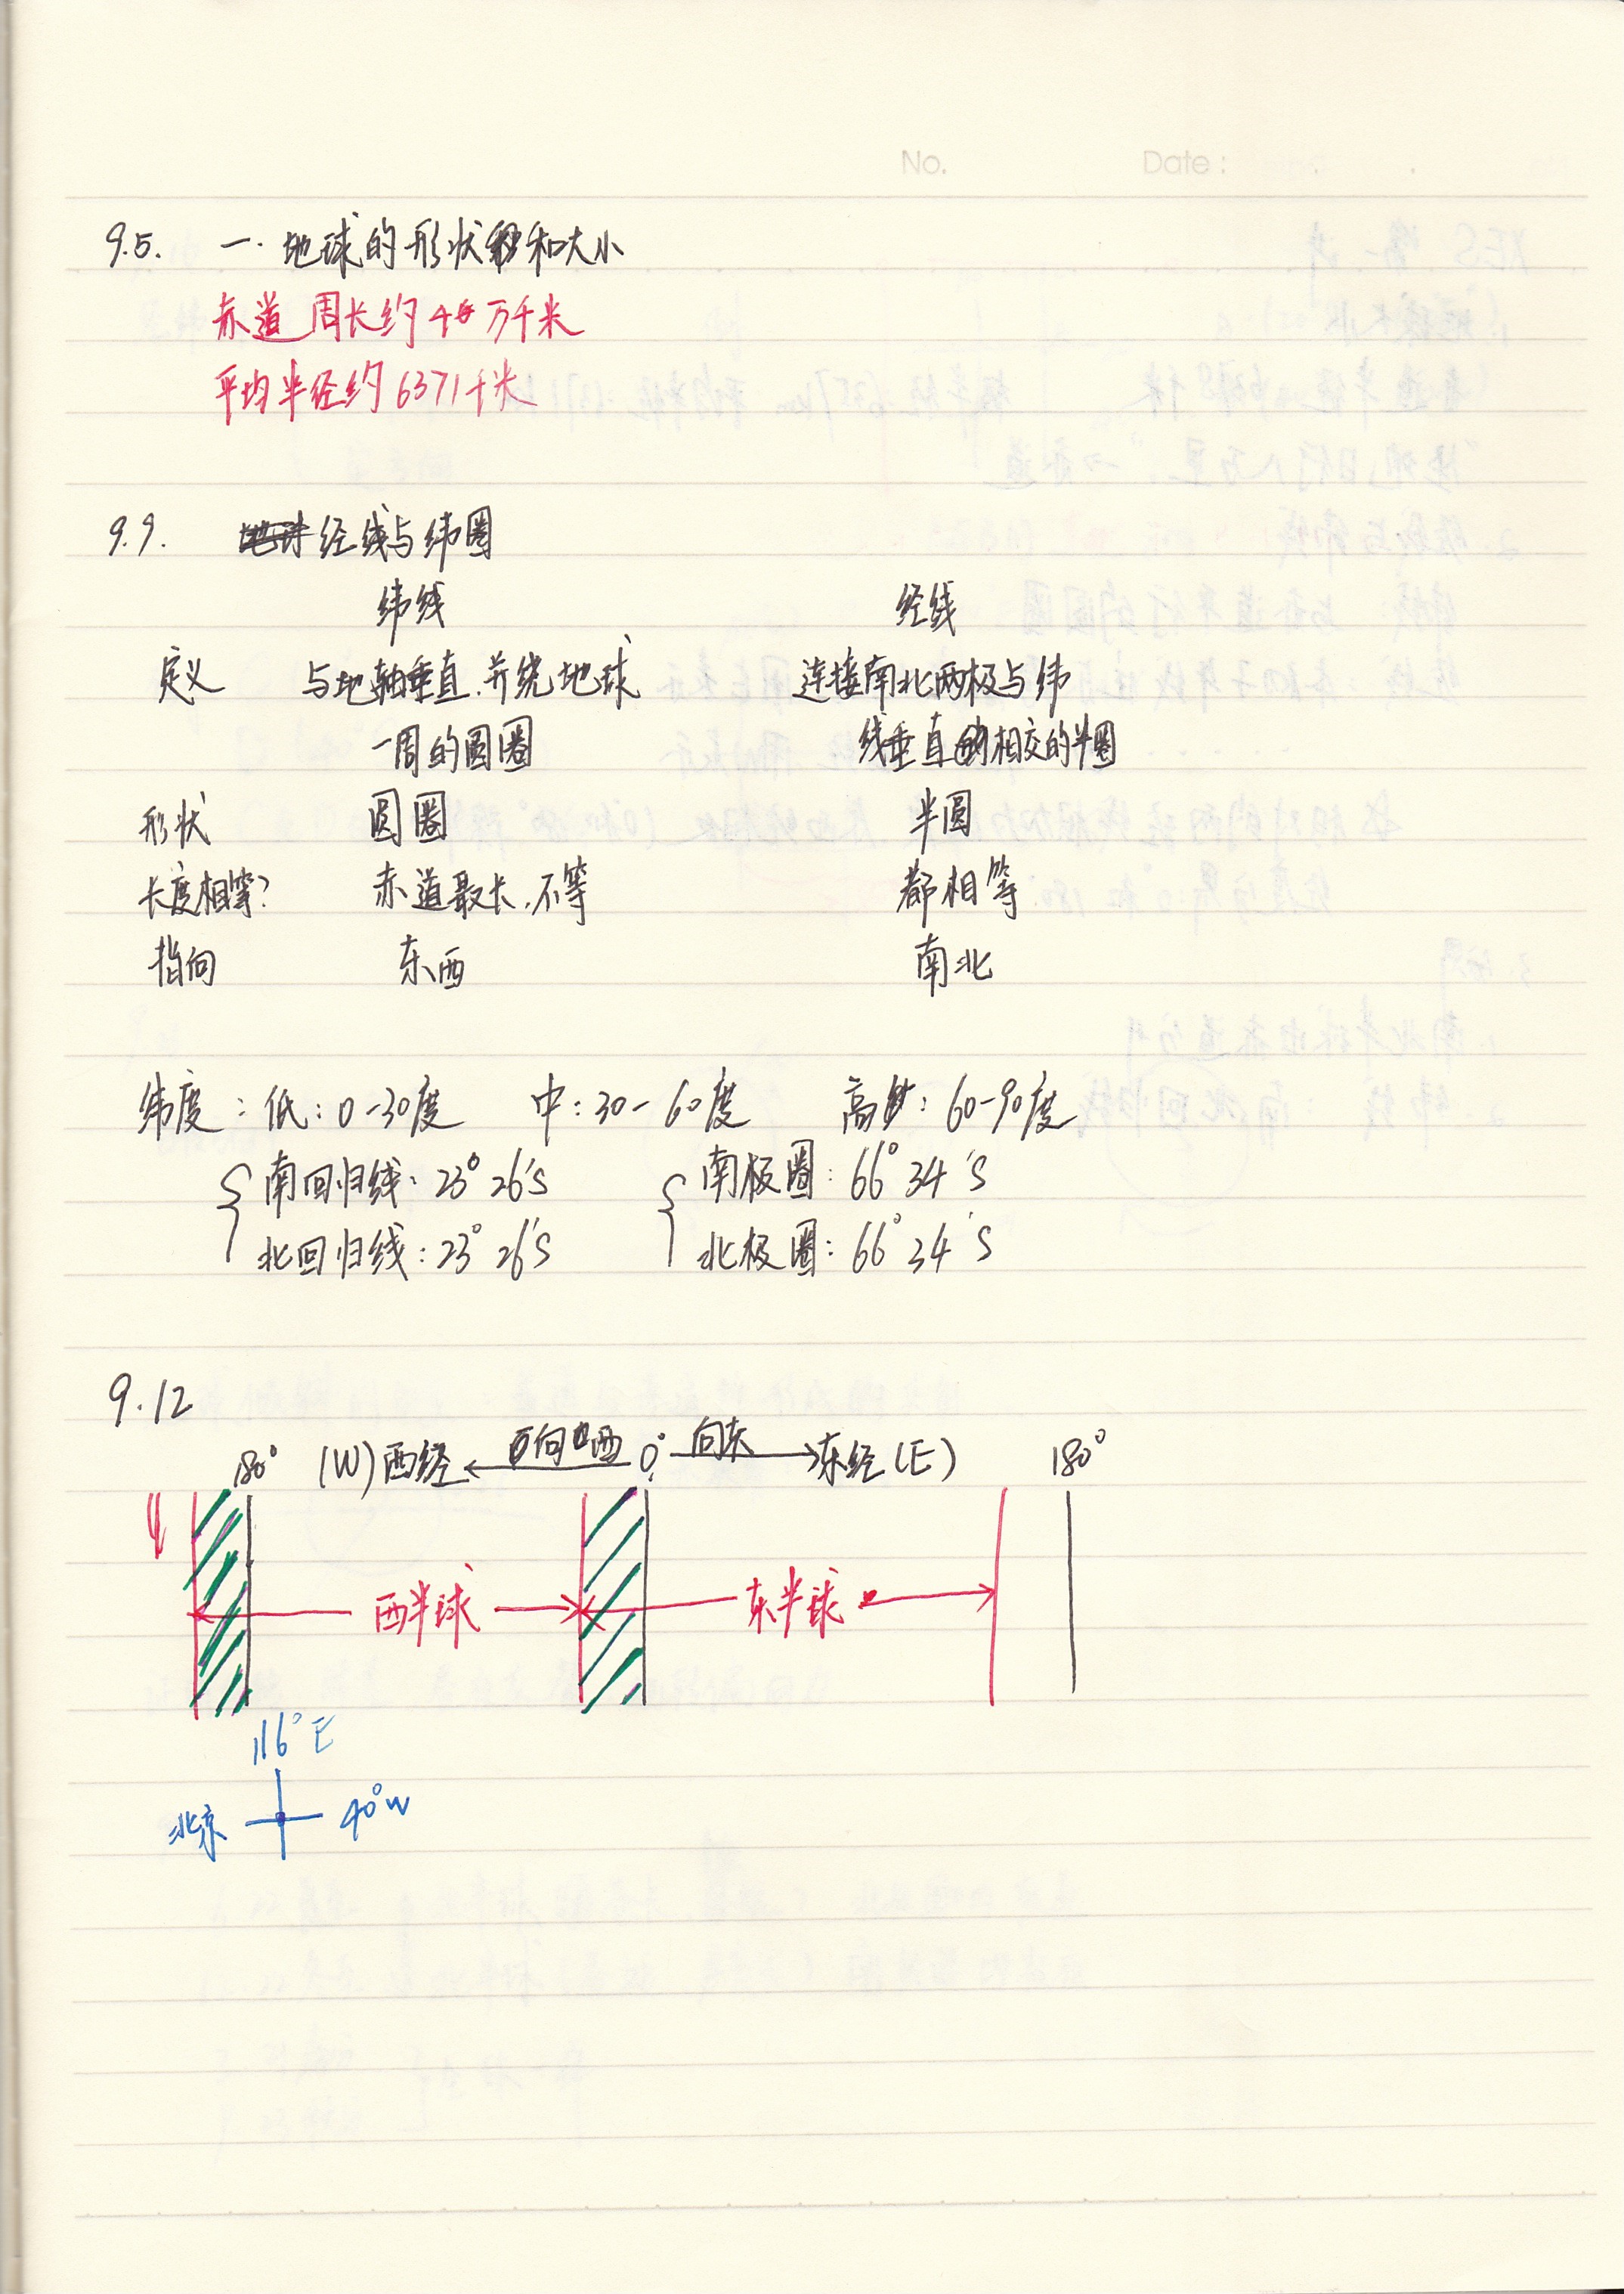 No.  Date :
9.5. 一. 地球的形状和大小
赤道周长约4万千米
平均半径约6371千米
9.9. 经线与纬圈
纬线 经线
定义 与地轴垂直.并绕地球 连接南北两极与纬
一周的圆圈 线垂直相交的半圈
形状 圆圈 半圆
长度相等? 赤道最长.不等 都相等
指向 东西 南北
纬度：低：0-30度 中：30-60度 高：60-90度
南回归线：23°26'S 南极圈：66°34'S
北回归线：23°26'S 北极圈：66°34'S
9.12
180° (W)西经 向西 0° 向东 东经(E) 180°
西半球 东半球
116°E
北京 40°W